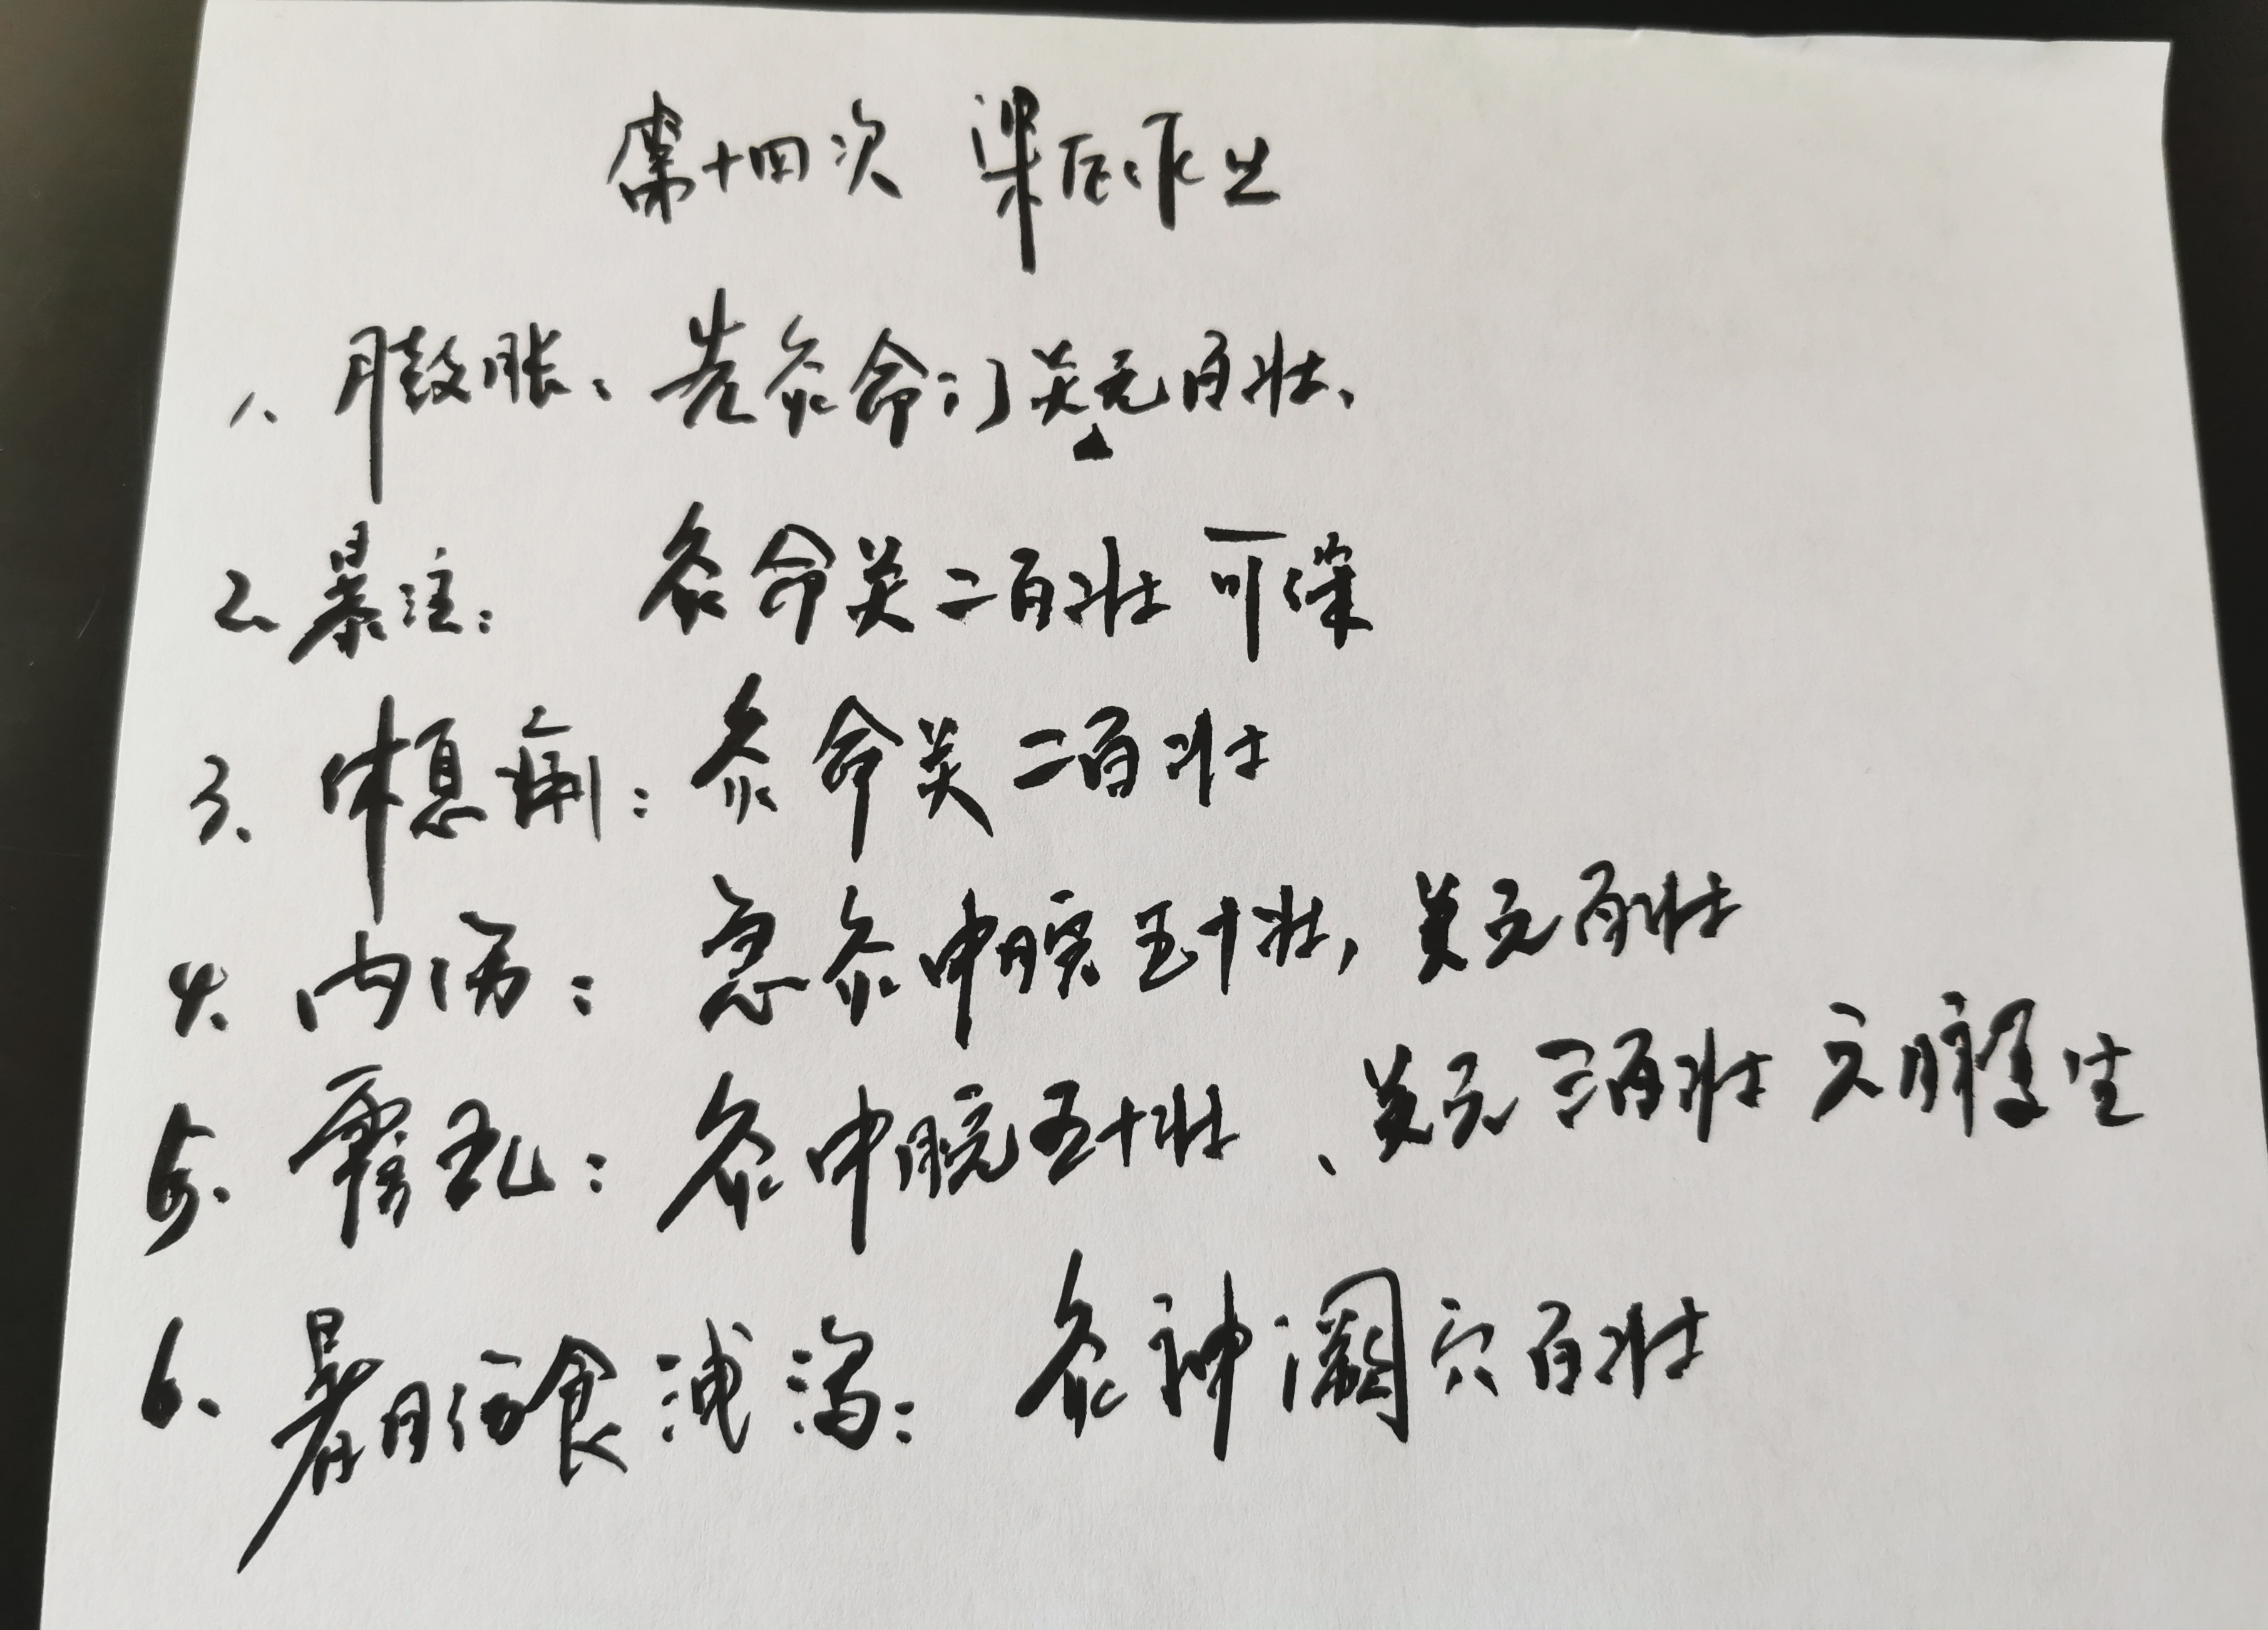 第十四次 课后作业
1、臌胀、先灸命门关元百壮、
2、暴注： 灸命关二百壮 可保
3、休息痢：灸命关二百壮
4、内伤：急灸中脘五十壮，关元百壮
5、霍乱：灸中脘五十壮、关元三百壮 六脉复生
6、暑月伤食泄泻：灸神阙穴百壮